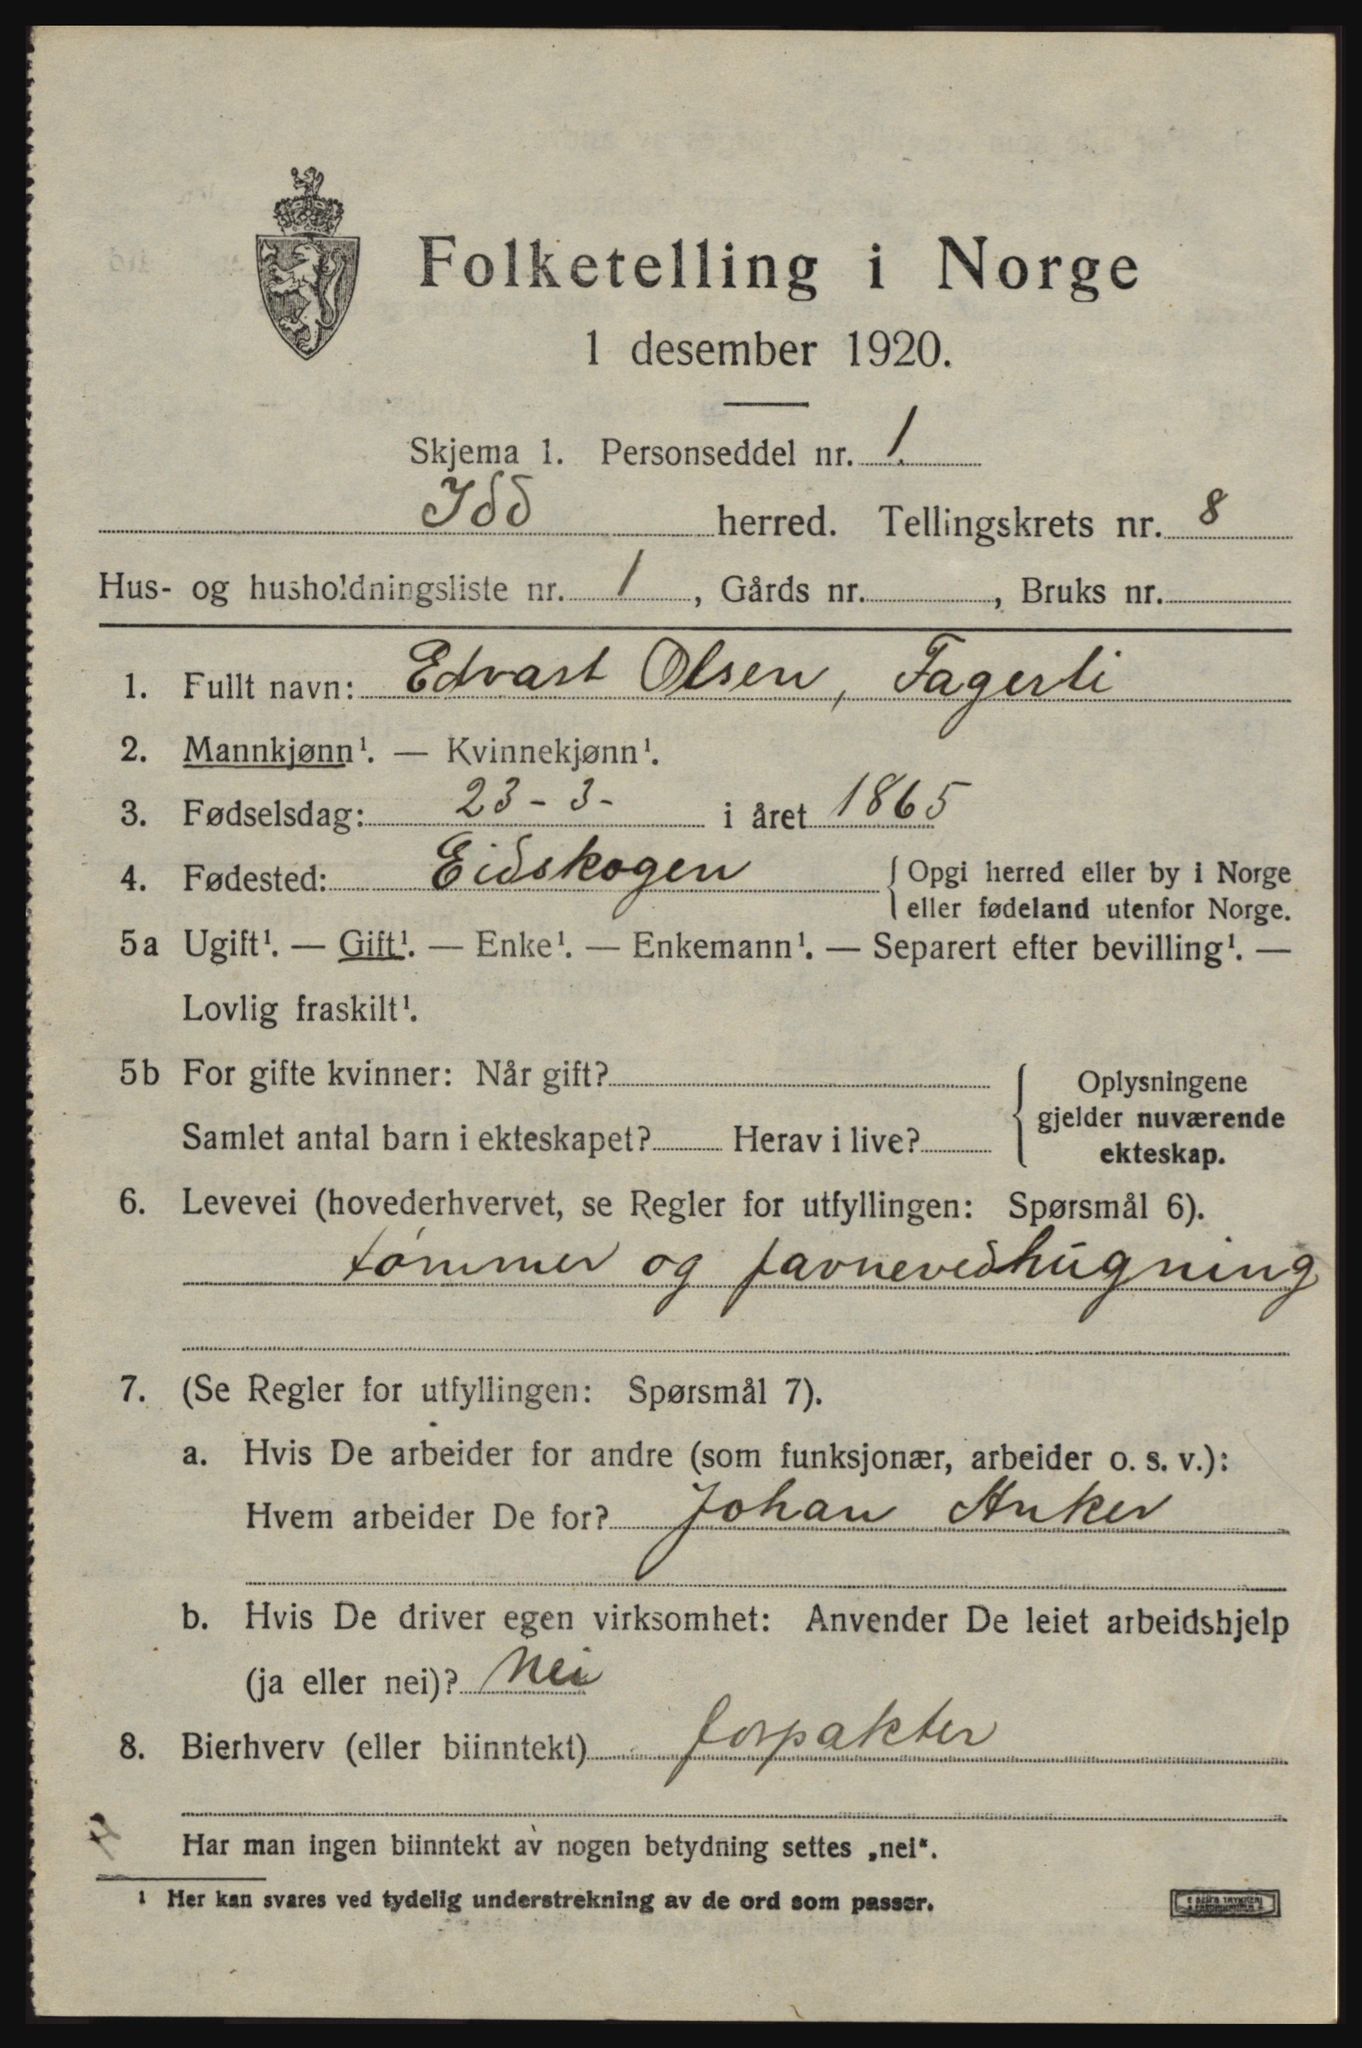 Folketelling i Norge
1 desember 1920.
Skjema 1. Personseddel nr. 1.
Idd herred. Tellingskrets nr. 8
Hus- og husholdningsliste nr. 1, Gårds nr. , Bruks nr.
1. Fullt navn: Edvart Olsen, Fagerli
2. Mannkjønn¹. — Kvinnekjønn¹.
3. Fødselsdag: 23 - 3 - i året 1865
4. Fødested: Eidskogen { Opgi herred eller by i Norge
eller fødeland utenfor Norge.
5a Ugift¹. — Gift¹. — Enke¹. — Enkemann¹. — Separert efter bevilling¹. —
Lovlig fraskilt¹.
5b For gifte kvinner: Når gift?
Samlet antal barn i ekteskapet? Herav i live?
{ Oplysningene
gjelder nuværende
ekteskap.
6. Levevei (hovederhvervet, se Regler for utfyllingen: Spørsmål 6).
tømmer og favnevedhugning
7. (Se Regler for utfyllingen: Spørsmål 7).
a. Hvis De arbeider for andre (som funksjonær, arbeider o. s. v.):
Hvem arbeider De for? Johan Anker
b. Hvis De driver egen virksomhet: Anvender De leiet arbeidshjelp
(ja eller nei)? Nei
8. Bierhverv (eller biinntekt) forpakter
Har man ingen biinntekt av nogen betydning settes „nei“.
¹ Her kan svares ved tydelig understrekning av de ord som passer.